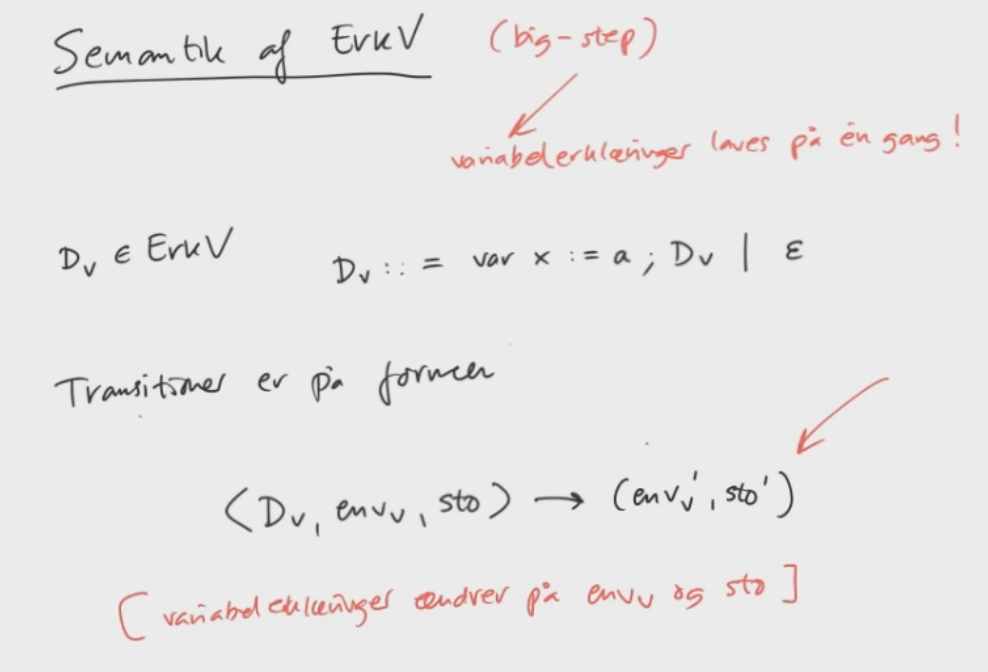 Semantik af ErkV (big-step)
variabelerklæringer laves på én gang!
Dᵥ ∈ ErkV Dᵥ ::= var x := a ; Dᵥ | ε
Transitioner er på formen
⟨Dᵥ, envᵥ, sto⟩ → (envᵥ', sto')
[variabelerklæringer ændrer på envᵥ og sto]